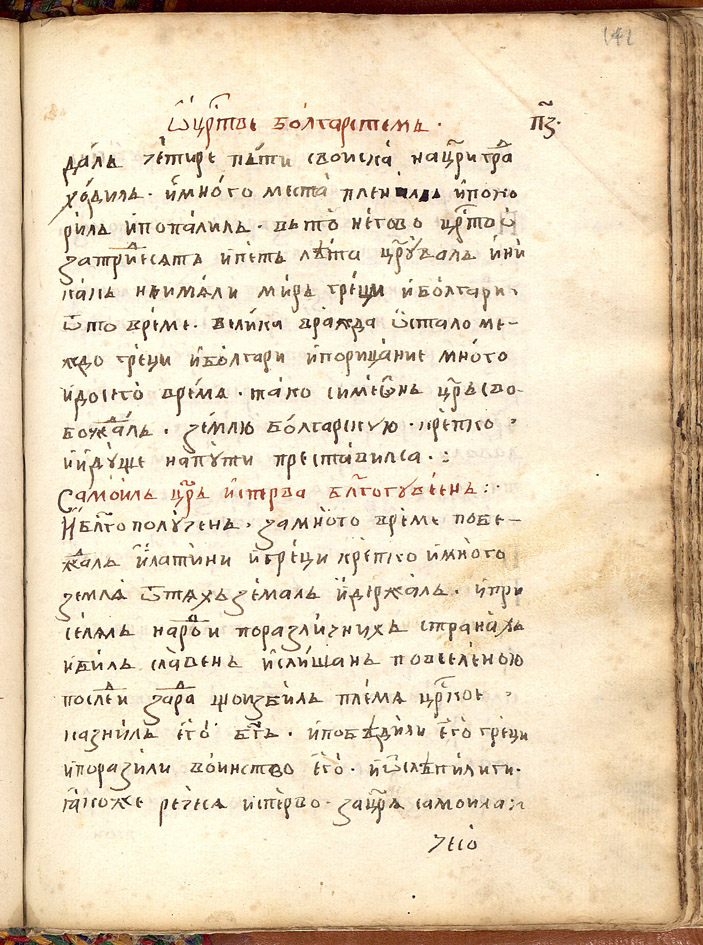 41
Ѡ црⷭ҇тве болгарстемь · п҃з·
даль четире пъти своиска на цр҃и граⷣ
ходиль · и много места плениль и поко
риль и попалиль · въ то негово црⷭ҇тво
за триⷣесять и петь лѣта цр҃уваль и ни
какь не имали мирь греци и болгари ·
ѿ то време · велика вражда остало ме-
ждо греци и болгари и порицание много
и до сего времѧ · тако симеѡнь цр҃ь сво
божⷣаль · землю болгарскую · крепко ·
и идуще на пути преставилсѧ ·:
Самоиль цр҃ь исперва блг҃огувеень :·
И блг҃ополучень · за много време побе-
жⷣаль и латини и греци крепко и много
землѧ ѿ тяхь земаль и держаль · и при
селяль нароⷣи по различнихь странахь
и биль славень и слишань по вселеною
послеⷣи зараⷣ що избиль племѧ црⷭ҇кое ·
казниль его бг҃ь · и победили его греци
и поразили воинство его · и ѡслѣпили ги ·
ꙗкоже речесѧ исперво · за цр҃ѧ самоила :·
чесо